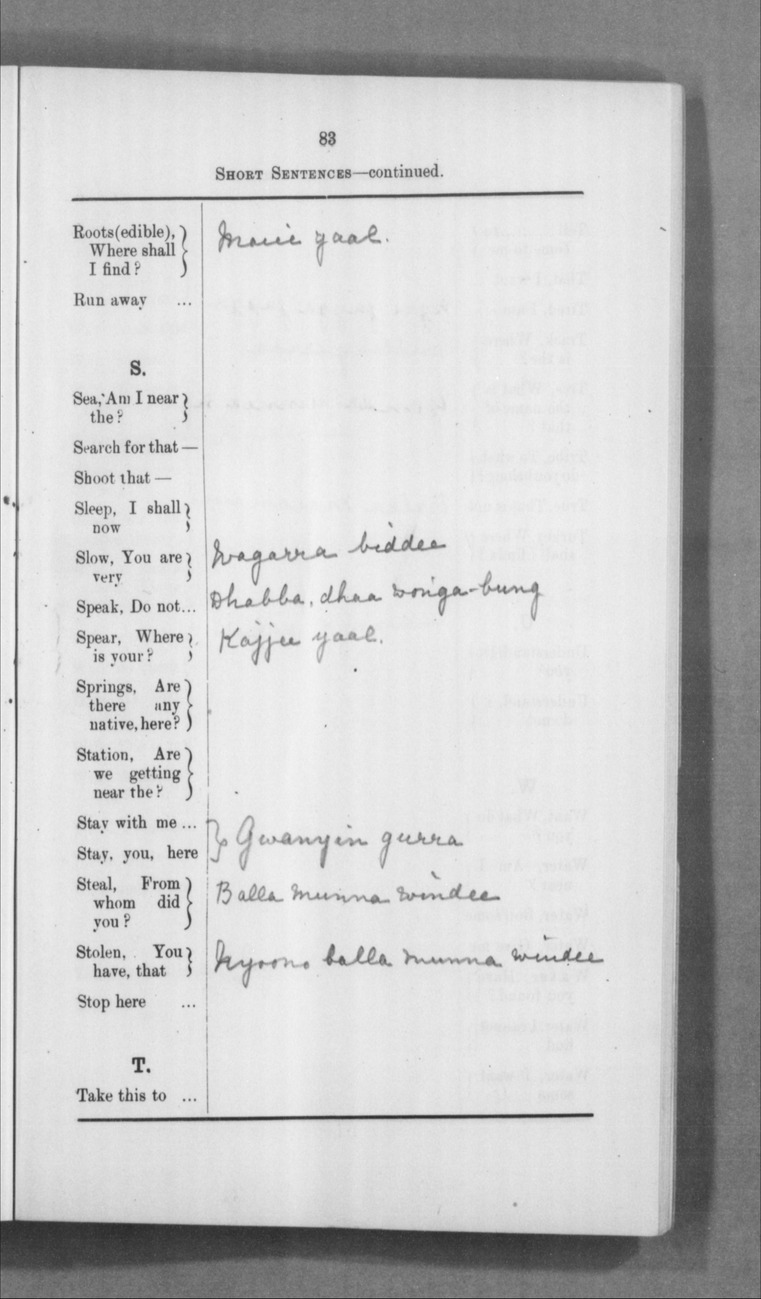 83
SHORT SENTENCES—continued.
Roots(edible), Where shall I find? yaal.
Run away ...
S.
Sea, Am I near the?
Search for that —
Shoot that —
Sleep, I shall now
Slow, You are very Wagarra biddee
Speak, Do not... Dhabba, dhaa wonga-bung
Spear, Where is your? Kajjee yaal.
Springs, Are there any native, here?
Station, Are we getting near the?
Stay with me ...
Stay, you, here Gwanyin gurra
Steal, From whom did you? Balla munna windee
Stolen, You have, that balla munna windee
Stop here ...
T.
Take this to ...